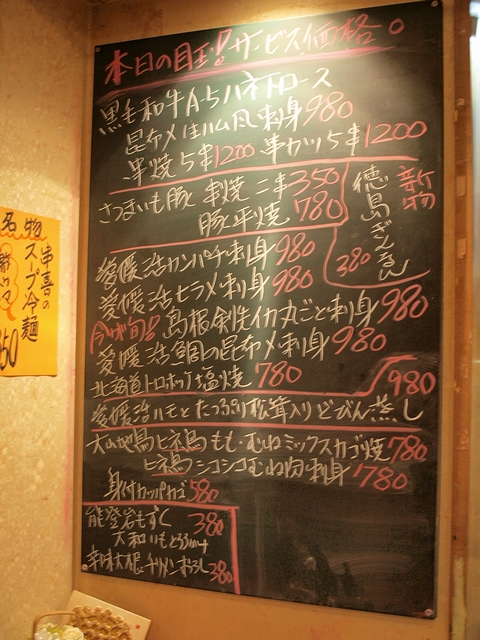 本日の目玉!サービス価格。
黒毛和牛A5ハネトロース
昆布〆生ハム風刺身980
串焼5串1200 串かつ5串1200
さつまいも豚と 串焼 二串350
豚と平焼780
新物
徳島ぎんなん
380
愛媛活カンパチ刺身980
愛媛活ヒラメ刺身980
今が旬!!島根剣先イカ丸ごと刺身980
愛媛活鯛の昆布〆刺身980
北海道トロホッケ塩焼780
愛媛活ハモとたっぷり松茸入りどびん蒸し
980
大山地鳥ヒネ鳥もも・むねミックスカゴ焼780
ヒネ鳥シコシコむね肉刺身780
身付カッパカゴ580
能登岩もずく 380
大和いも
辛味大根チリメンおろし380
名物
串喜の
スープ冷麺